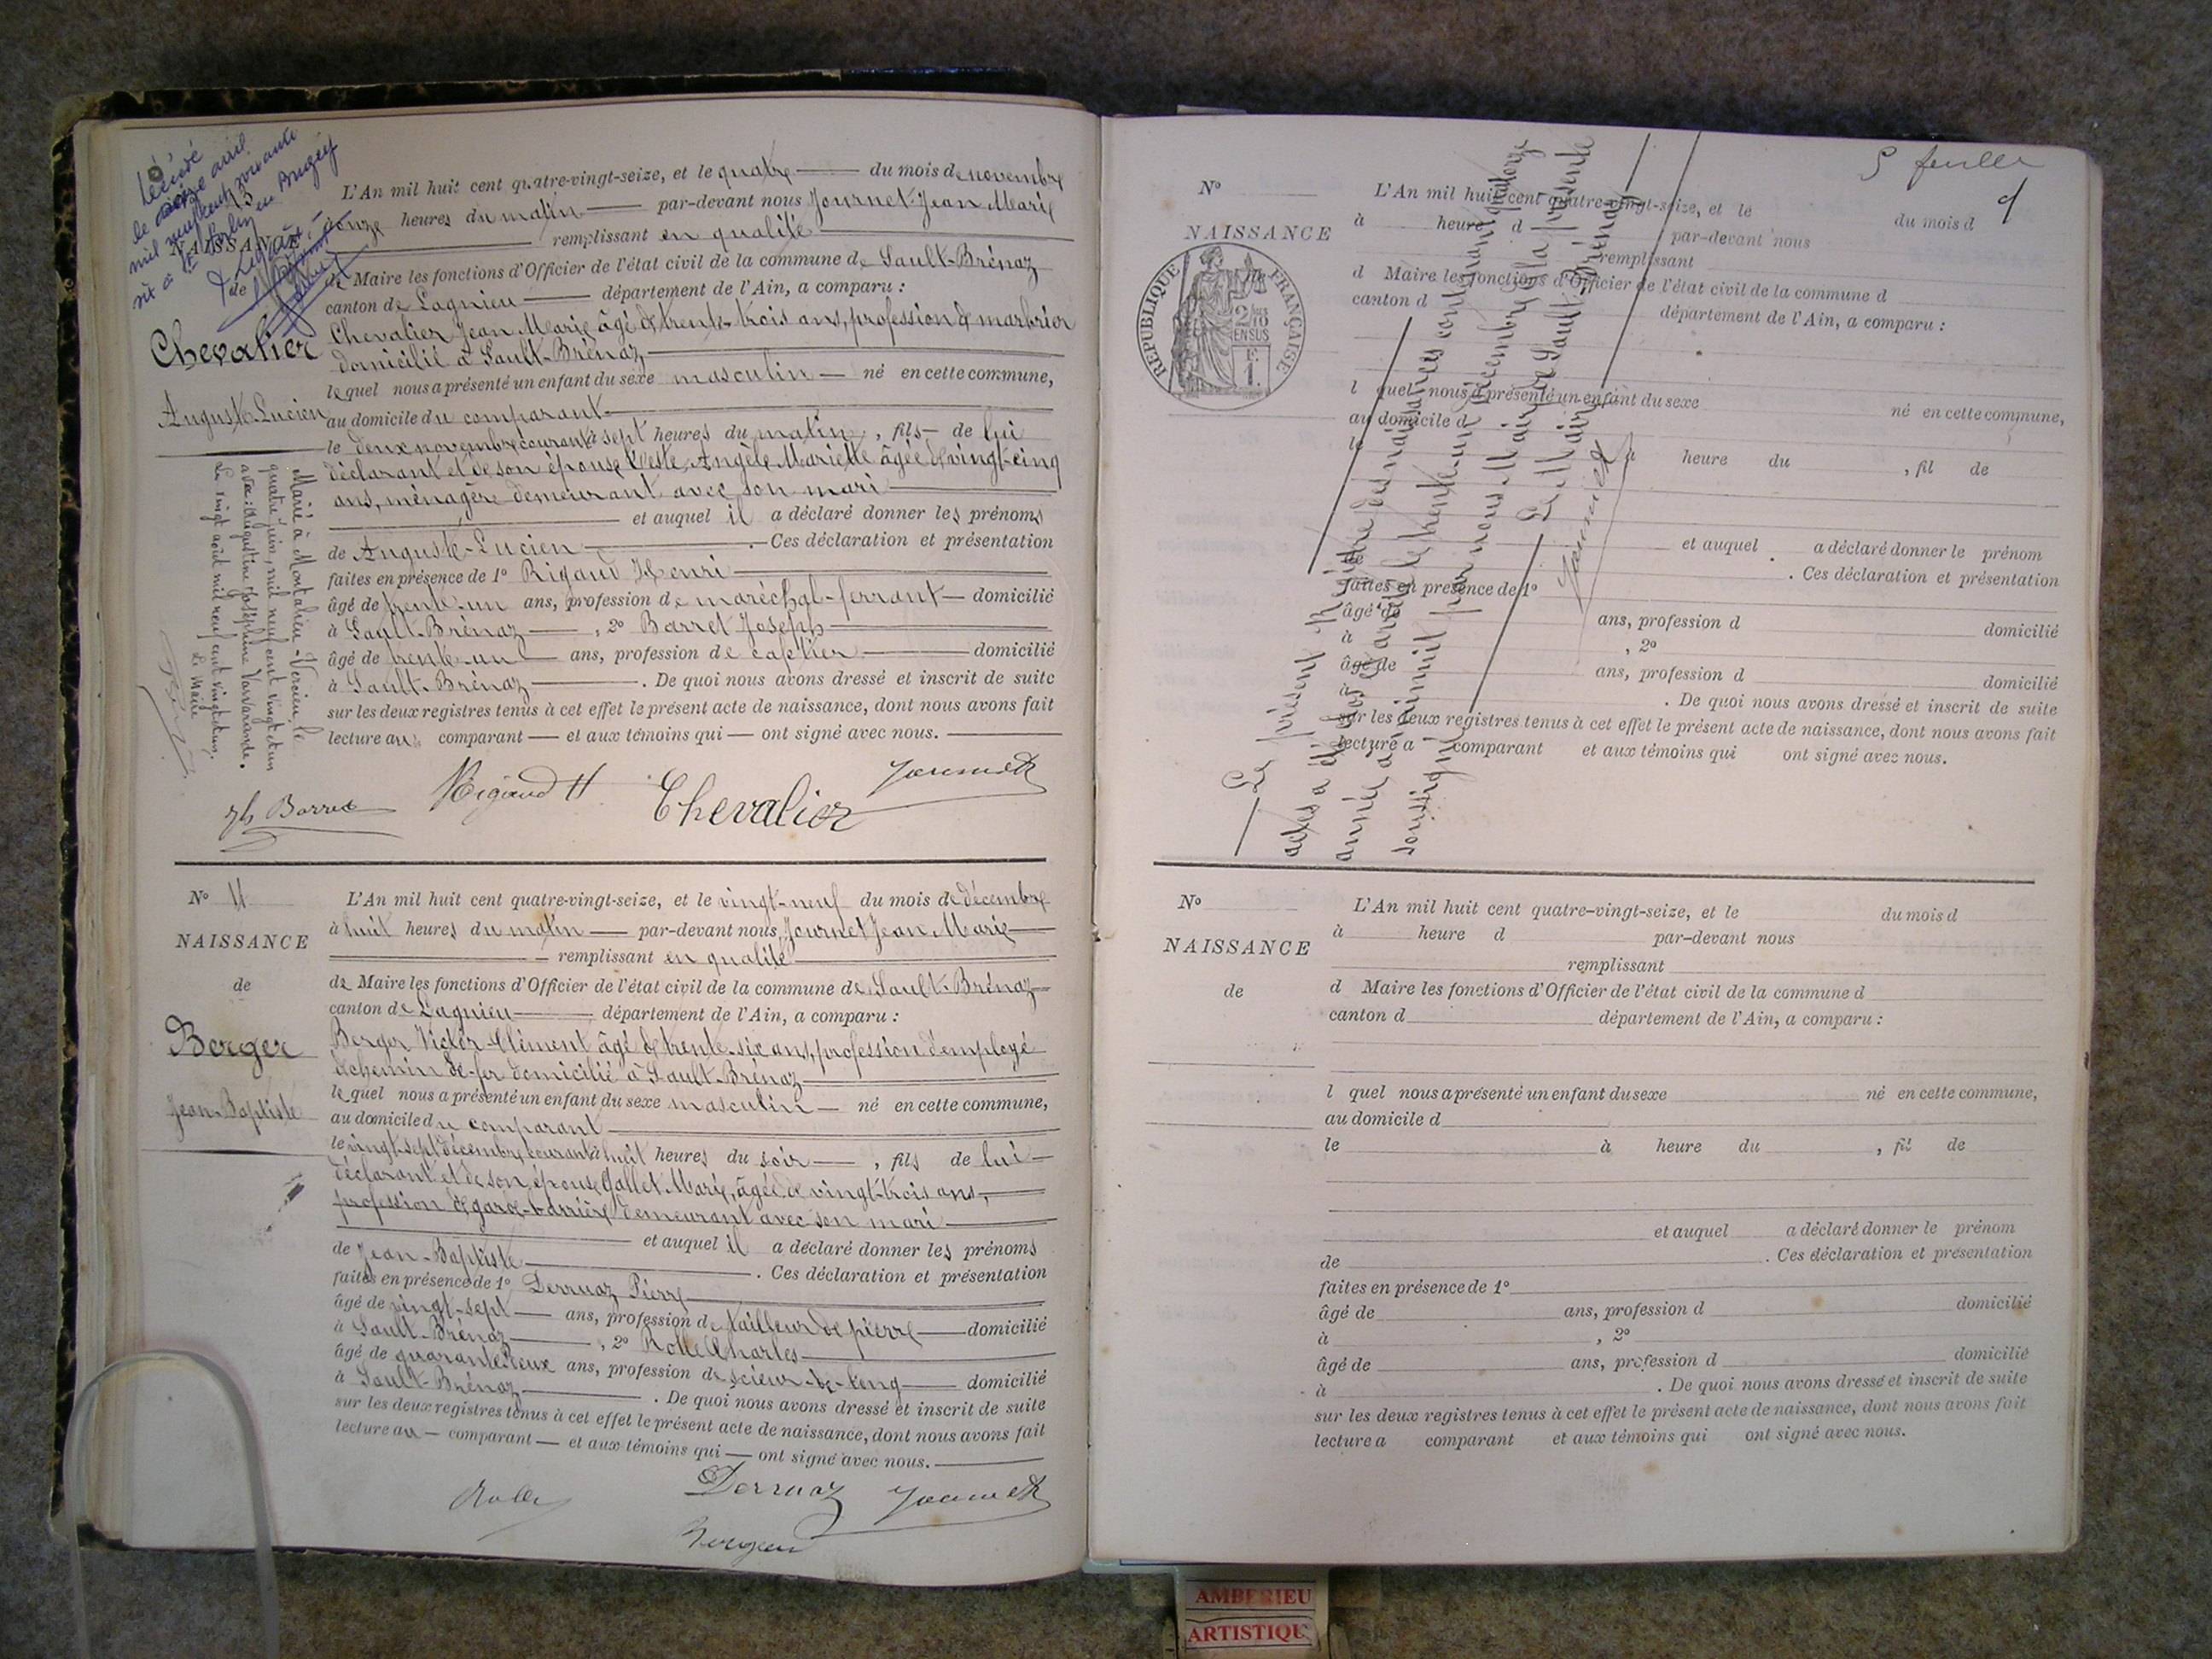 Décédé
le seize avril
mil neuf cent soixante
L'An mil huit cent quatre-vingt-seize, et le quatre du mois de novembre
à onze heures du matin par-devant nous Journet Jean Marie
remplissant en qualité
de Maire les fonctions d'Officier de l'état civil de la commune de Sault-Brénaz
canton de Lagnieu département de l'Ain, a comparu :
Chevalier Jean Marie âgé de trente-trois ans, profession de marbrier
domicilié à Sault-Brénaz
lequel nous a présenté un enfant du sexe masculin né en cette commune,
au domicile du comparant
le deux novembre courant à sept heures du matin, fils de lui
déclarant et de son épouse Teste Angèle Mariette âgée de vingt-cinq
ans, ménagère demeurant avec son mari
et auquel il a déclaré donner les prénoms
de Auguste-Lucien . Ces déclaration et présentation
faites en présence de 1° Rigaud Henri
âgé de trente-un ans, profession de maréchal-ferrant domicilié
à Sault-Brénaz , 2° Barret Joseph
âgé de trente-un ans, profession de cafetier domicilié
à Sault-Brénaz . De quoi nous avons dressé et inscrit de suite
sur les deux registres tenus à cet effet le présent acte de naissance, dont nous avons fait
lecture au comparant et aux témoins qui ont signé avec nous.
NAISSANCE
de
Chevalier
Auguste Lucien
Marié à Montalieu-Vercieu, le
quatre juin, mil neuf cent vingt et un
avec Augustine Joséphine Varvarande.
Le vingt août mil neuf cent vingt et un.
Le Maire
Jh Barret
Rigaud H
Chevalier
Journet
N° 14
NAISSANCE
de
Berger
Jean-Baptiste
L'An mil huit cent quatre-vingt-seize, et le vingt-neuf du mois de décembre
à huit heures du matin par-devant nous Journet Jean Marie
remplissant en qualité
de Maire les fonctions d'Officier de l'état civil de la commune de Sault-Brénaz
canton de Lagnieu département de l'Ain, a comparu :
Berger Victor Clément âgé de trente-six ans, profession d'employé
de chemin de-fer domicilié à Sault-Brénaz
lequel nous a présenté un enfant du sexe masculin né en cette commune,
au domicile du comparant
le vingt-sept décembre courant à huit heures du soir , fils de lui
déclarant et de son épouse Gallet Marie, âgée de vingt-trois ans,
profession de garde-barrière demeurant avec son mari
et auquel il a déclaré donner les prénoms
de Jean-Baptiste . Ces déclaration et présentation
faites en présence de 1° Derruaz Pierre
âgé de vingt-sept ans, profession de tailleur de pierre domicilié
à Sault-Brénaz , 2° Rolle Charles
âgé de quarante deux ans, profession de scieur-de-long domicilié
à Sault-Brénaz . De quoi nous avons dressé et inscrit de suite
sur les deux registres tenus à cet effet le présent acte de naissance, dont nous avons fait
lecture au comparant et aux témoins qui ont signé avec nous.
Rolle
Derruaz
Journet
Berger
N°
NAISSANCE
REPUBLIQUE FRANÇAISE
2/10 EN SUS
F. 1.
L'An mil huit cent quatre-vingt-seize, et le du mois d
à heure d par-devant nous
remplissant
d Maire les fonctions d'Officier de l'état civil de la commune d
canton d département de l'Ain, a comparu :
l quel nous a présenté un enfant du sexe né en cette commune,
au domicile d
le à heure du , fil de
et auquel a déclaré donner le prénom
de . Ces déclaration et présentation
faites en présence de 1°
âgé de ans, profession d domicilié
à , 2°
âgé de ans, profession d domicilié
à . De quoi nous avons dressé et inscrit de suite
sur les deux registres tenus à cet effet le présent acte de naissance, dont nous avons fait
lecture a comparant et aux témoins qui ont signé avec nous.
Le présent Registre des naissances contenant quatorze
actes a été clos et arrêté le trente-un décembre de la présente
année à minuit par nous Maire de Sault-Brénaz
soussigné
Le Maire
Journet
5 feuille
N°
NAISSANCE
de
L'An mil huit cent quatre-vingt-seize, et le du mois d
à heure d par-devant nous
remplissant
d Maire les fonctions d'Officier de l'état civil de la commune d
canton d département de l'Ain, a comparu :
l quel nous a présenté un enfant du sexe né en cette commune,
au domicile d
le à heure du , fil de
et auquel a déclaré donner le prénom
de . Ces déclaration et présentation
faites en présence de 1°
âgé de ans, profession d domicilié
à , 2°
âgé de ans, profession d domicilié
à . De quoi nous avons dressé et inscrit de suite
sur les deux registres tenus à cet effet le présent acte de naissance, dont nous avons fait
lecture a comparant et aux témoins qui ont signé avec nous.
AMBERIEU
ARTISTIQU